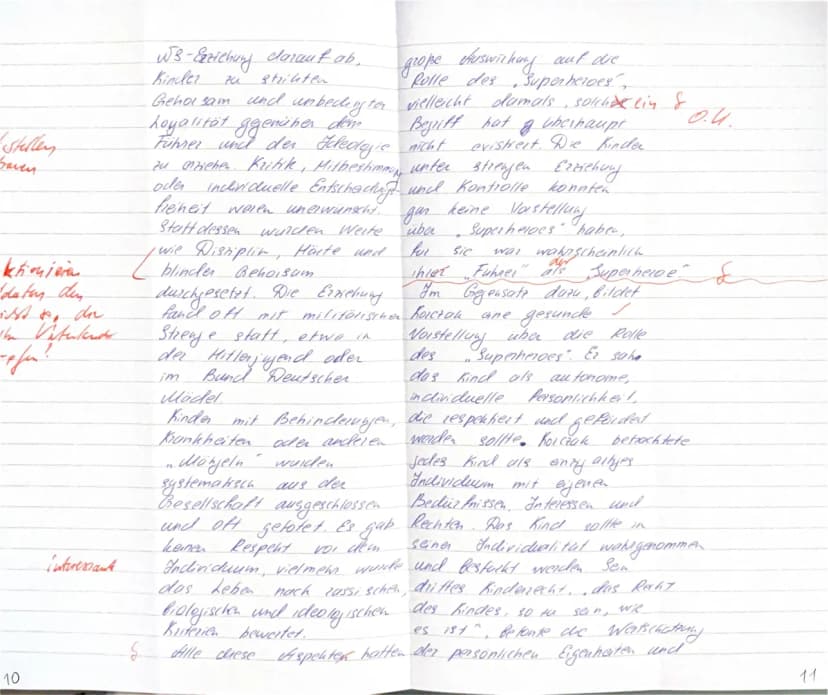 NS-Erziehung darauf ab,
Kinder zu strikten
Gehorsam und unbedingter
Loyalität gegenüber dem
Führer und der Ideologie
zu erziehen. Kritik, Mitbestimmung
oder individuelle Entscheidungs-
freiheit waren unerwünscht.
Stattdessen wurden Werte
wie Disziplin, Härte und
blinder Gehorsam
durchgesetzt. Die Erziehung
fand oft mit militärischer
Strenge statt, etwa in
der Hitlerjugend oder
im Bund Deutscher
Mädel
Kinder mit Behinderungen,
Krankheiten oder anderen
„Mängeln" wurden
systematisch aus der
Gesellschaft ausgeschlossen
und oft getötet. Es gab
keinen Respekt vor dem
interessant
Individuum, vielmehr wurde
das Leben nach rassischen,
biologischen und ideologischen
Kriterien bewertet.
Alle diese Aspekten hatten
10
große Auswirkung auf die
Rolle des „Superheroes",
vielleicht damals, solch ein
O.K.
Begriff hat überhaupt
nicht existiert. Die Kinder
unter strengen Erziehung
und Kontrolle konnten
gar keine Vorstellung
über „Superheroes" haben,
für sie war wahrscheinlich
ihrer „Führer" als der „Superheroe"
Im Gegensatz dazu, bildet
Korczak eine gesunde
Vorstellung über die Rolle
des „Superheroes". Er sah
das Kind als autonome,
individuelle Persönlichkeit,
die respektiert und gefördert
werden sollte. Korczak betrachtete
jedes Kind als einzigartiges
Individuum mit eigenen
Bedürfnissen, Interessen und
Rechten. Das Kind sollte in
seiner Individualität wahrgenommen
und werden Sein
drittes Kinderrecht, „das Recht
des Kindes, so zu sein, wie
es ist", betonte die Wertschätzung
der persönlichen Eigenheiten und
11